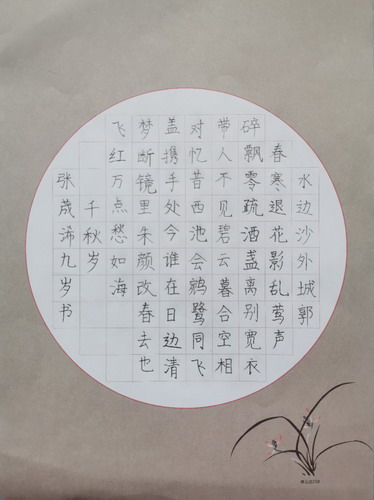 水边沙外城郭
春寒退花影乱莺声
碎飘零疏酒盏离别宽衣
带人不见碧云暮合空相
对忆昔西池会鹓鹭同飞
盖携手处今谁在日边清
梦断镜里朱颜改春去也
飞红万点愁如海
千秋岁
张浠九岁书